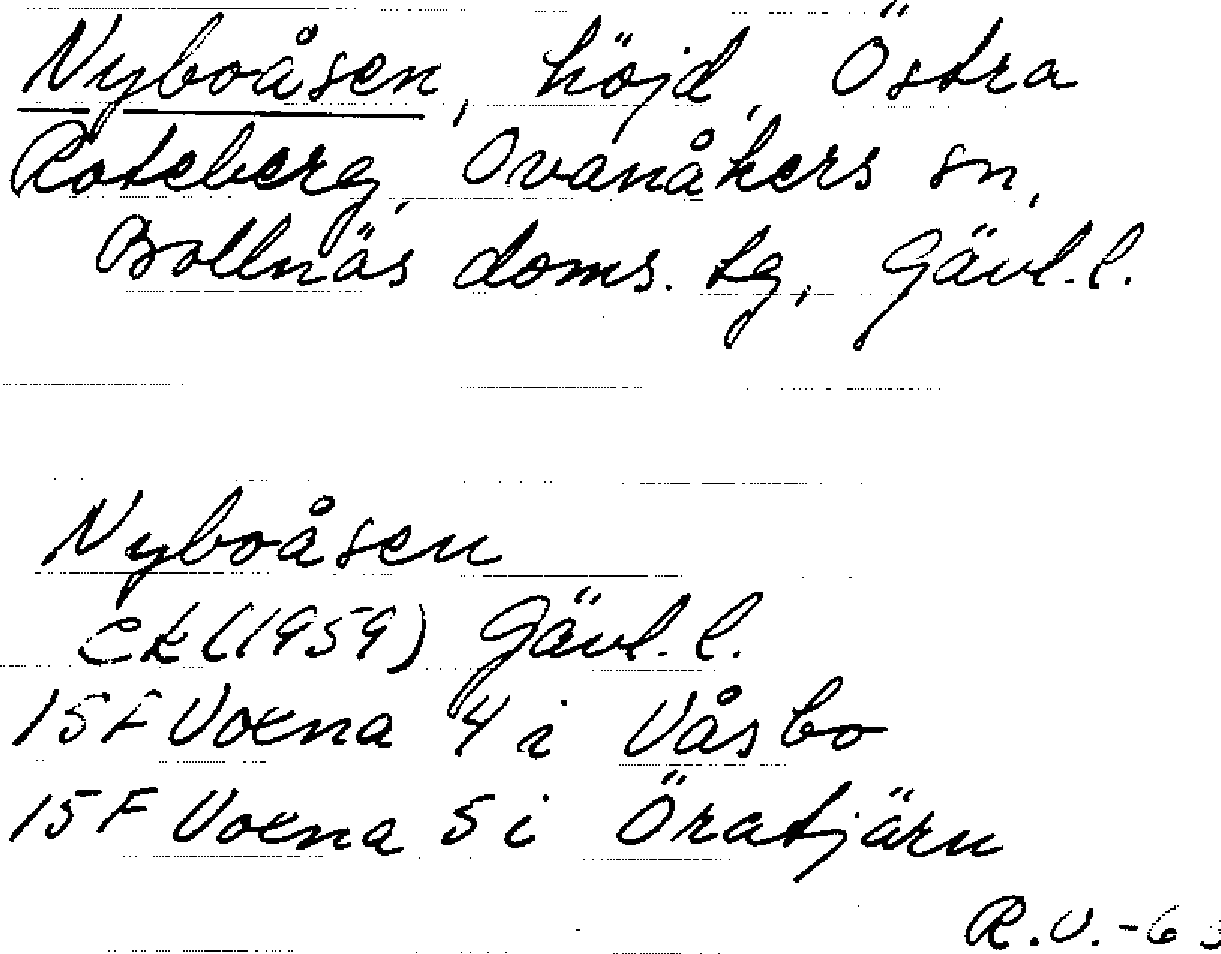 Nyboåsen, höjd, Östra
Roteberg, Ovanåkers sn,
Bollnäs doms. tg, Gävl.l.
Nyboåsen
ek (1959) Gävl.l.
15F Voxna 4 i Våsbo
15F Voxna 5 i Öratjärn
R.V.-63